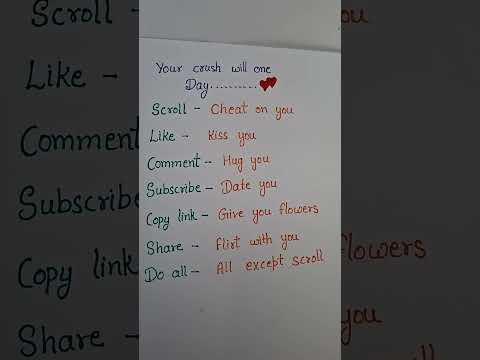 Your crush will one
Day..........
Scroll - Cheat on you
Like - Kiss you
Comment - Hug you
Subscribe - Date you
Copy link - Give you flowers
Share - Flirt with you
Do all - All except scroll
Scroll -
Like -
Comment
Subscribe
Copy link
Share -
you
flowers
you